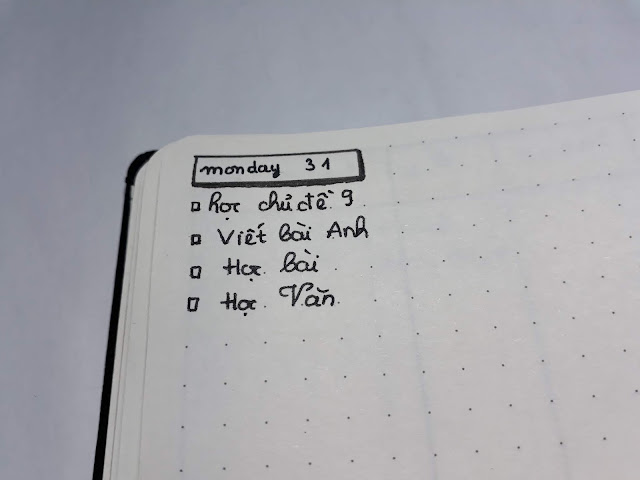 monday 31
học chủ đề 9
Viết bài Anh
Học bài
Học Văn